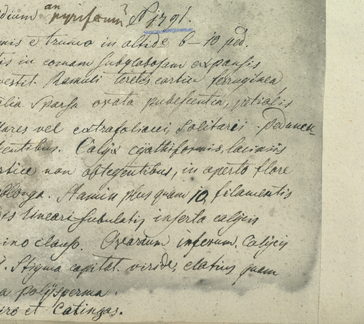 an
pyriforum? N 1791.
e trunco in altid. 6–10 ped.
in comam subglobosam expansis
vestit. Ramuli teretes cortice ferruginea
sparsa ovata pubescentia, petiolis
vel extrafoliacei, Solitarii. Pedunc
Calix cyathiformis, laciniis
non obtegentibus, in aperto flore
oblonga. Stamin plus quam 10, filamentis
lineari-subulatis, inserta calycis
clauso. Ovarium inferum, Calycis
Stigma capitat. viride, elatius quam
polysperma.
et Catingas.